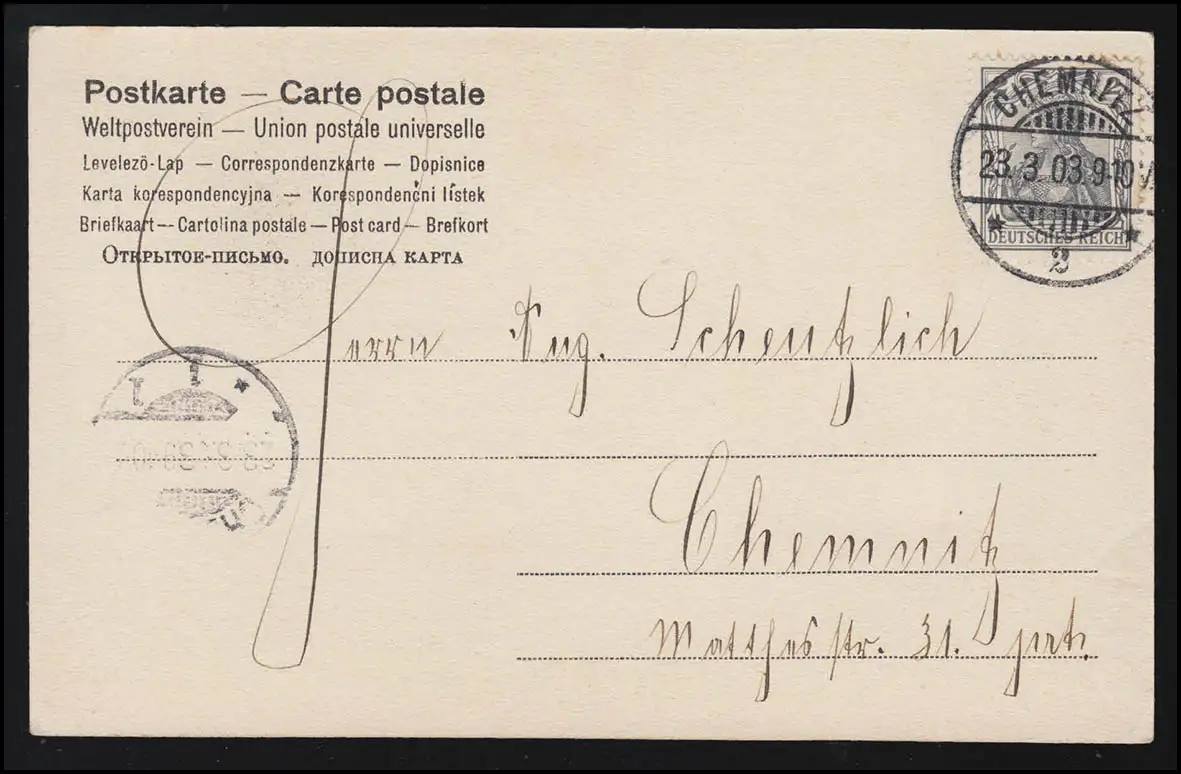 Postkarte — Carte postale
Weltpostverein — Union postale universelle
Levelezö-Lap — Correspondenzkarte — Dopisnice
Karta korespondencyjna — Korespondenčni lístek
Briefkaart — Cartolina postale — Post card — Brefkort
Открытое-письмо. дописна карта
CHEMNITZ
23.3.03.9-10V
DEUTSCHES REICH
2
Herrn Aug. Scheutzlich
Chemnitz
Matthesstr. 31. prt.